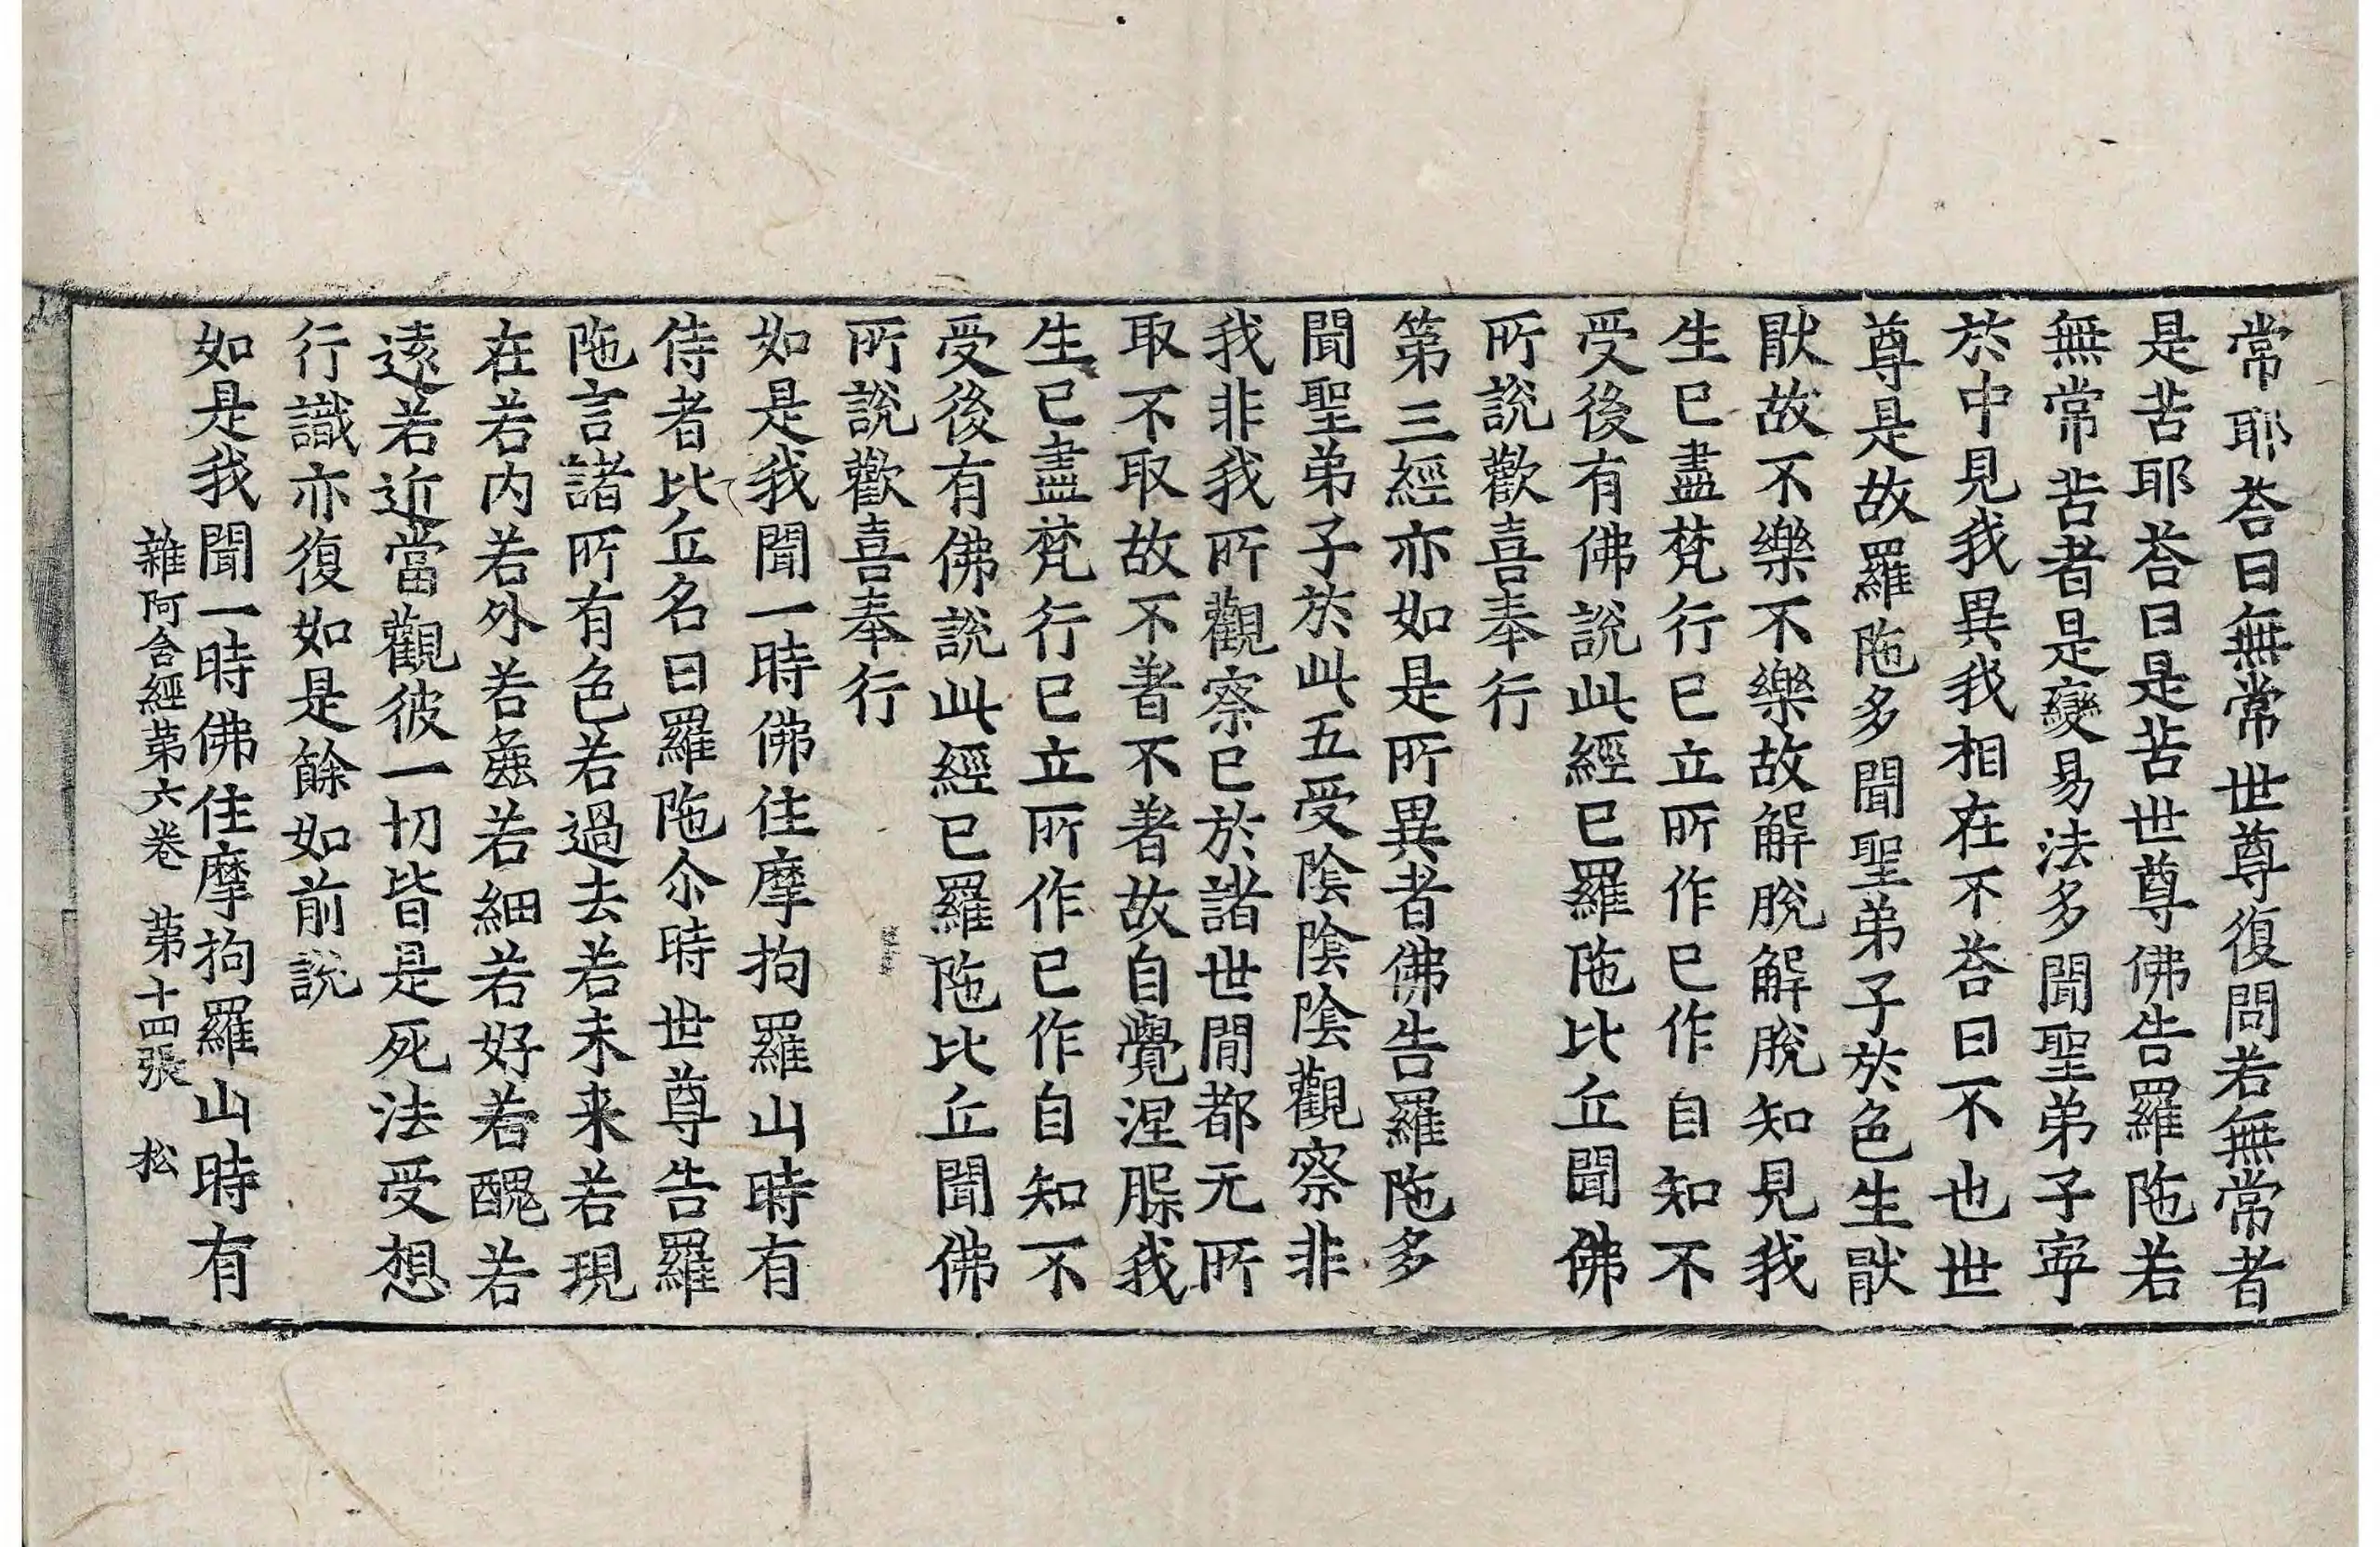 常耶荅曰無常世尊復問若無常者
是苦耶荅曰是苦世尊佛告羅陁若
無常苦者是變易法多聞聖弟子寕
於中見我異我相在不荅曰不也世
尊是故羅陁多聞聖弟子於色生猒
猒故不樂不樂故解脫解脫知見我
生已盡梵行已立所作已作自知不
受後有佛說此經已羅陁比丘聞佛
所說歡喜奉行
第三經亦如是所異者佛告羅陁多
聞聖弟子於此五受陰陰陰觀察非
我非我所觀察已於諸世間都无所
取不取故不著不著故自覺涅槃我
生已盡梵行已立所作已作自知不
受後有佛說此經已羅陁比丘聞佛
所說歡喜奉行
如是我聞一時佛住摩拘羅山時有
侍者比丘名曰羅陁尒時世尊告羅
陁言諸所有色若過去若未来若現
在若内若外若麁若細若好若醜若
逺若近當觀彼一切皆是死法受想
行識亦復如是餘如前說
如是我聞一時佛住摩拘羅山時有
雜阿含經第六卷 第十四張 松